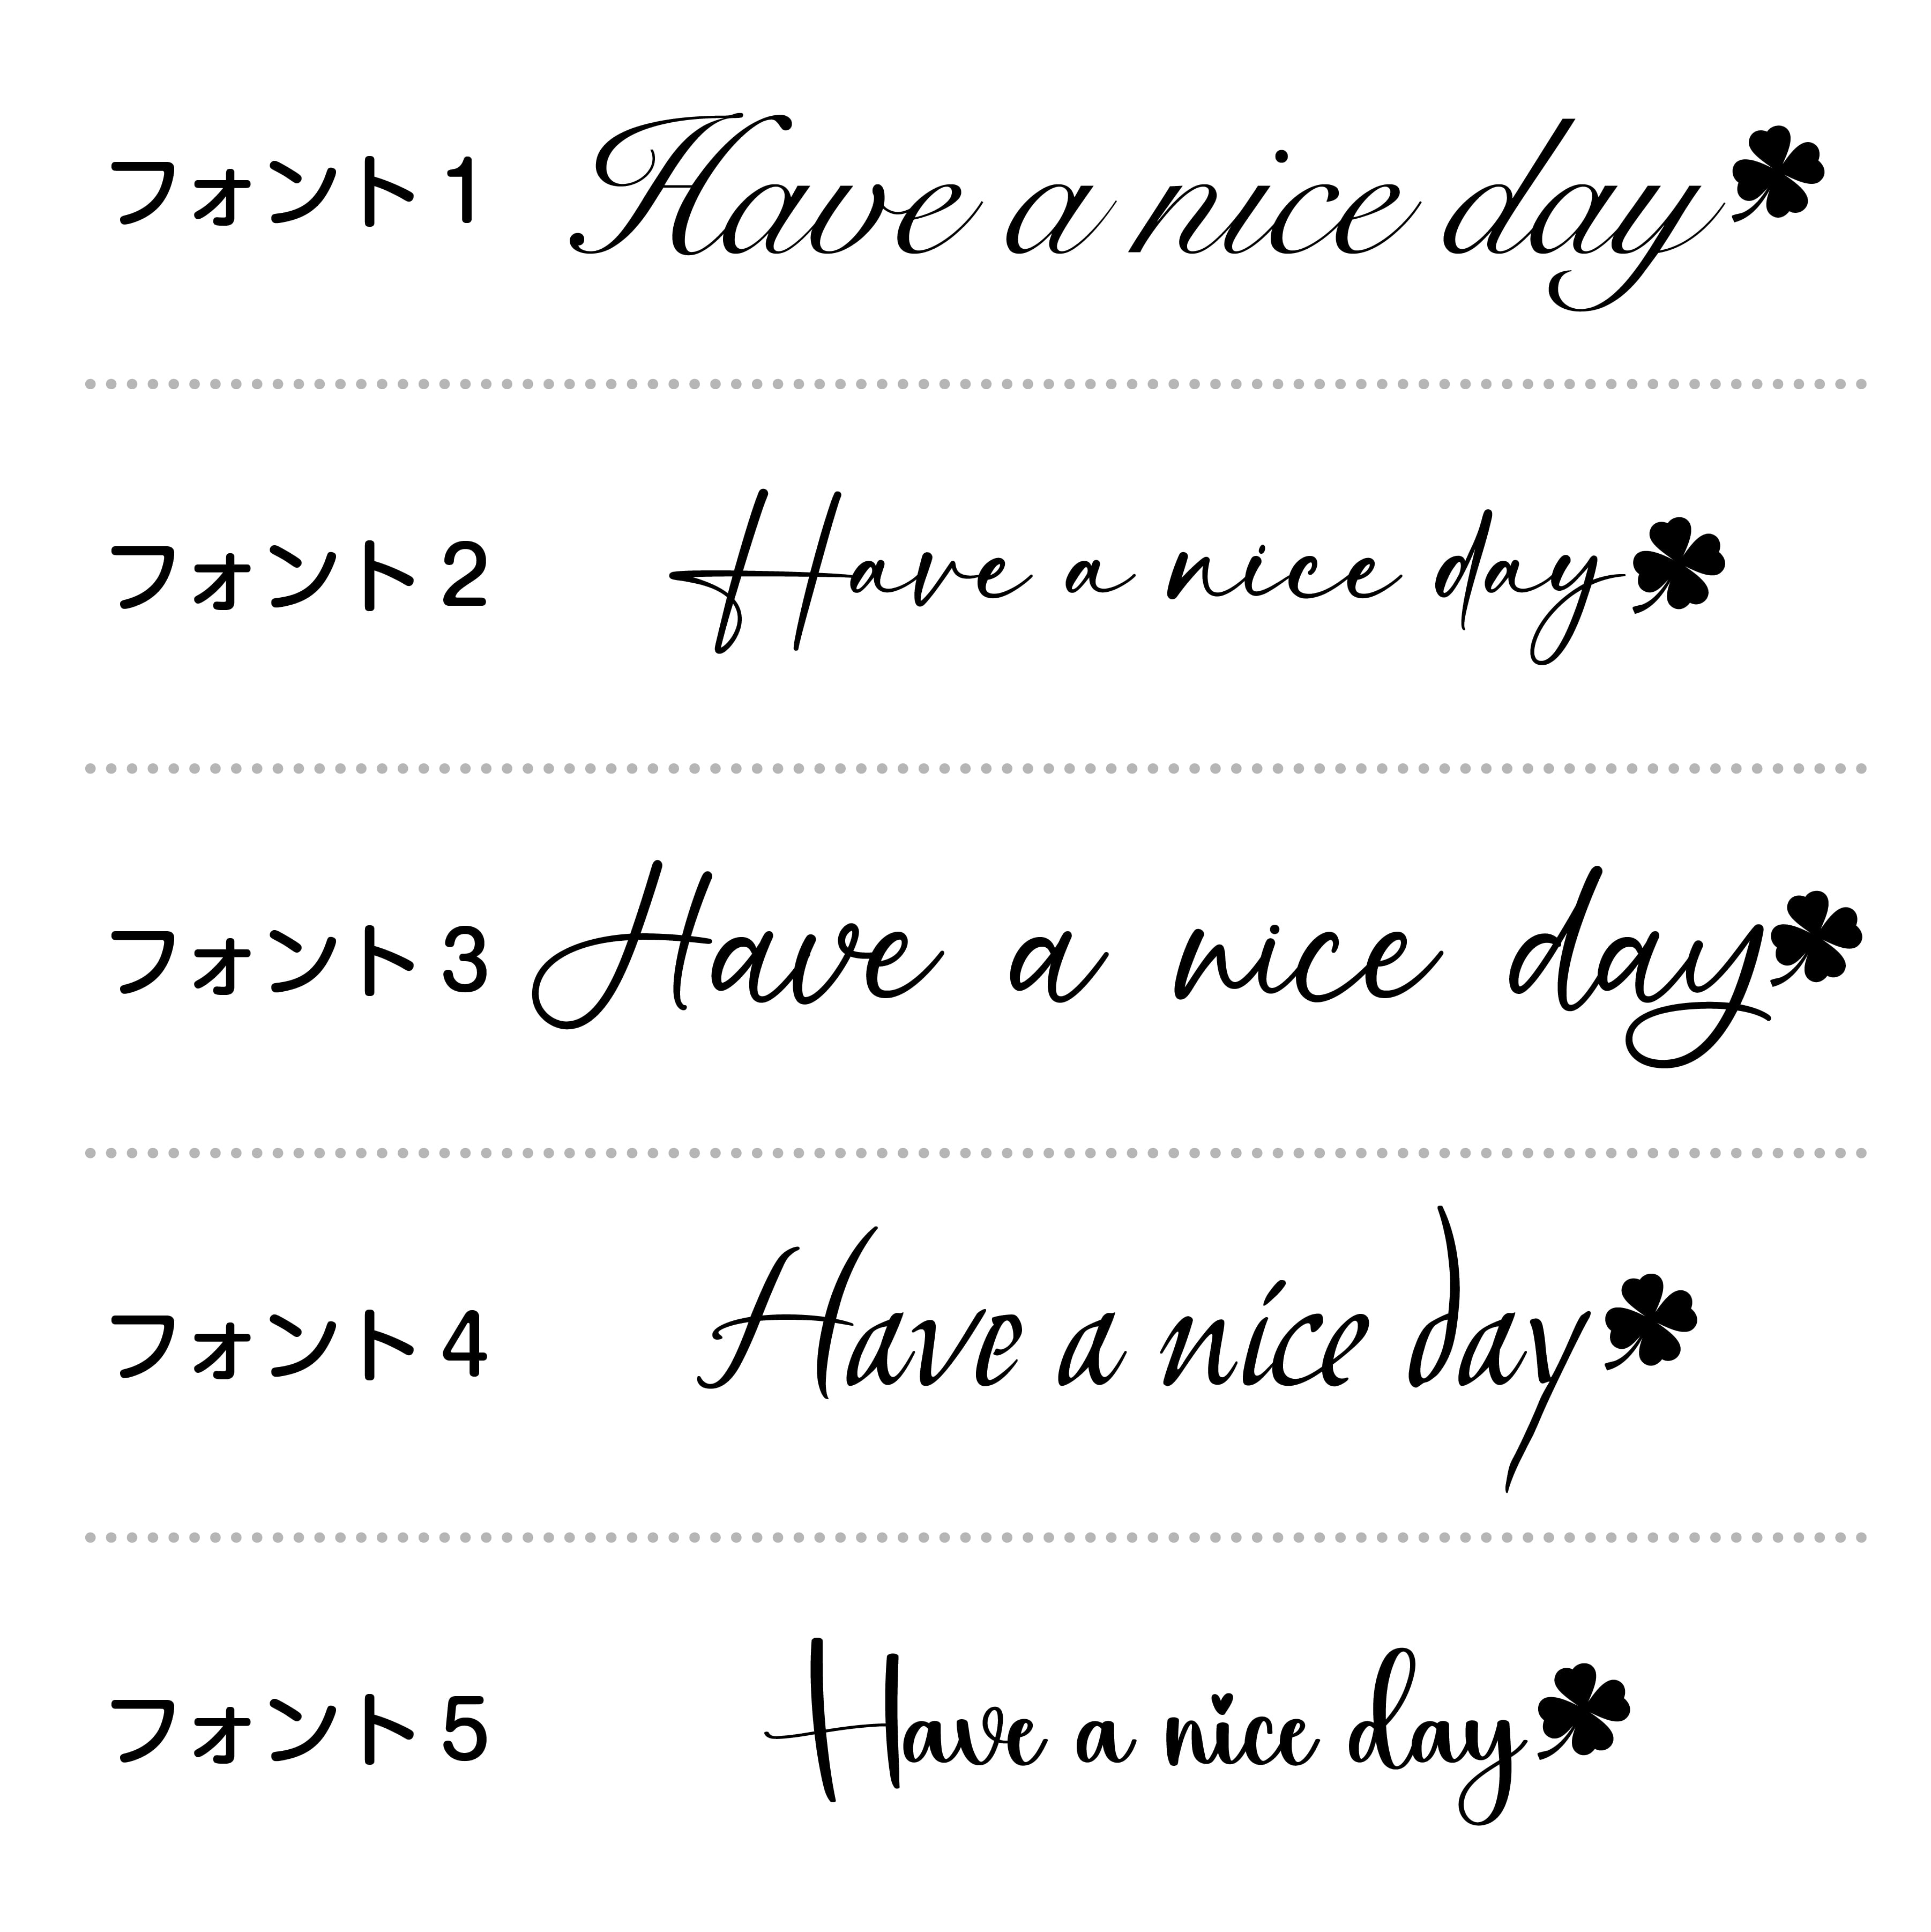 フォント1 Have a nice day
フォント2 Have a nice day
フォント3 Have a nice day
フォント4 Have a nice day
フォント5 Have a nice day